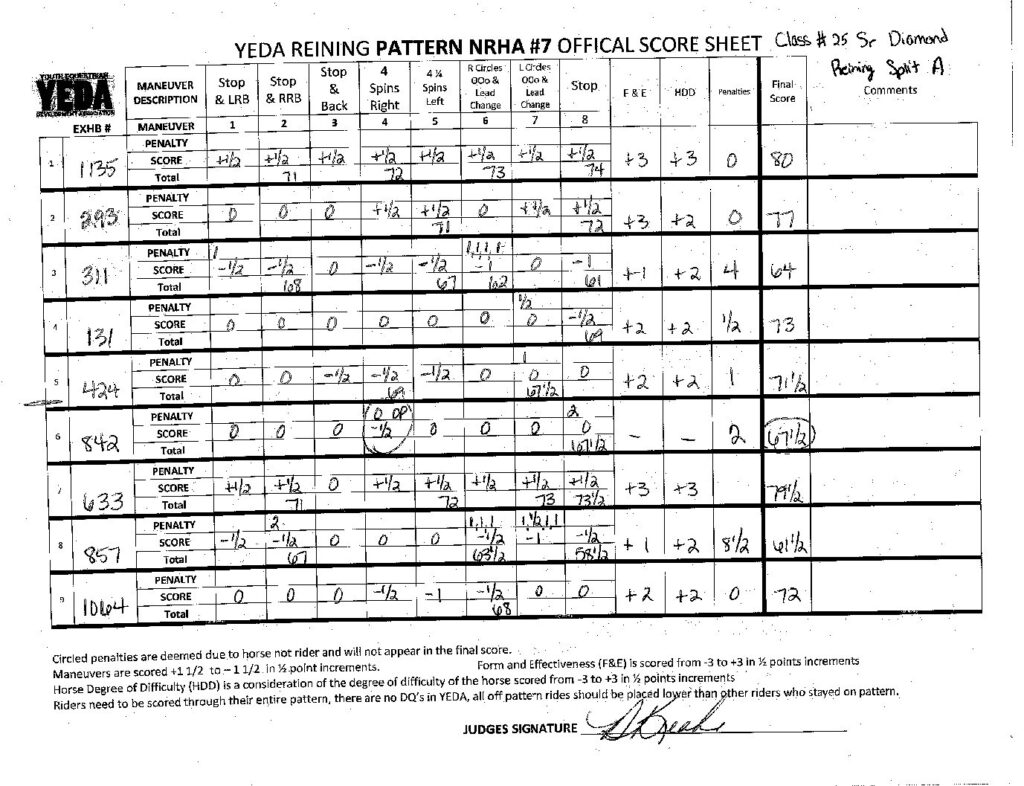 YEDA REINING PATTERN NRHA #7 OFFICAL SCORE SHEET Class # 25 Sr Diamond
Reining Split A
YOUTH EQUESTRIAN
YEDA
DEVELOPMENT ASSOCIATION
MANEUVER DESCRIPTION Stop & LRB Stop & RRB Stop & Back 4 Spins Right 4 ¼ Spins Left R Circles OOo & Lead Change L Circles OOo & Lead Change Stop F & E HDD Penalties Final Score Comments
EXHB # MANEUVER 1 2 3 4 5 6 7 8
1 1135 PENALTY
SCORE +1/2 +1/2 +1/2 +1/2 +1/2 +1/2 +1/2 +1/2 +3 +3 0 80
Total 71 72 73 74
2 293 PENALTY
SCORE 0 0 0 +1/2 +1/2 0 +1/2 +1/2 +3 +2 0 77
Total 71 72
3 311 PENALTY 1 1,1,1,1
SCORE -1/2 -1/2 0 -1/2 -1/2 -1 0 -1 +1 +2 4 64
Total 68 67 62 61
4 131 PENALTY 1/2
SCORE 0 0 0 0 0 0 0 -1/2 +2 +2 1/2 73
Total 69
5 424 PENALTY 1
SCORE 0 0 -1/2 -1/2 -1/2 0 0 0 +2 +2 1 71 1/2
Total 69 67 1/2
6 842 PENALTY 0 OP 2
SCORE 0 0 0 -1/2 0 0 0 0 - - 2 67 1/2
Total 67 1/2
7 633 PENALTY
SCORE +1/2 +1/2 0 +1/2 +1/2 +1/2 +1/2 +1/2 +3 +3 79 1/2
Total 71 72 73 73 1/2
8 857 PENALTY 2 1,1,1 1,1/2,1,1
SCORE -1/2 -1/2 0 0 0 -1/2 -1 -1/2 +1 +2 8 1/2 61 1/2
Total 67 63 1/2 58 1/2
9 1064 PENALTY
SCORE 0 0 0 -1/2 -1 -1/2 0 0 +2 +2 0 72
Total 68
Circled penalties are deemed due to horse not rider and will not appear in the final score.
Maneuvers are scored +1 1/2 to - 1 1/2 in ½ point increments. Form and Effectiveness (F&E) is scored from -3 to +3 in ½ points increments
Horse Degree of Difficulty (HDD) is a consideration of the degree of difficulty of the horse scored from -3 to +3 in ½ points increments
Riders need to be scored through their entire pattern, there are no DQ's in YEDA, all off pattern rides should be placed lower than other riders who stayed on pattern.
JUDGES SIGNATURE